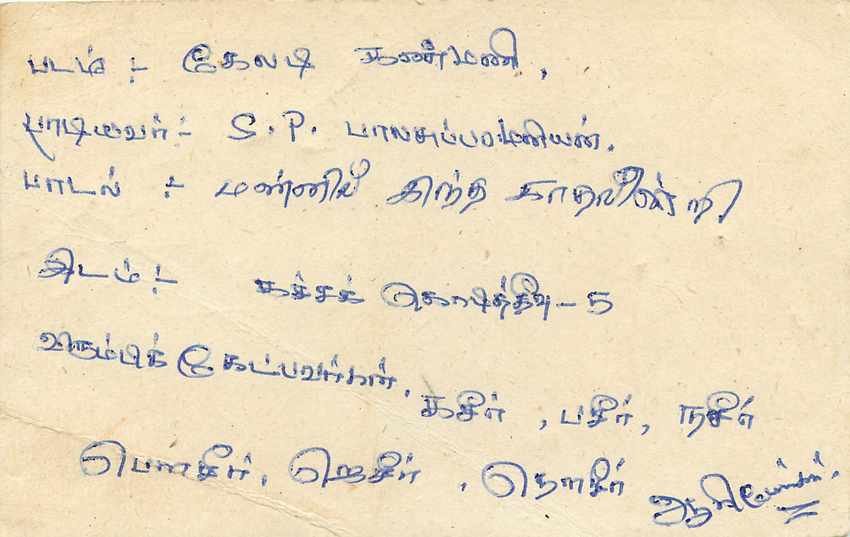 படம் :- கேலடி கண்மணி,
பாடியவர் :- S.P. பாலசுப்பரமணியன்.
பாடல் :- மண்ணில் கிந்த காதலின்றி,
இடம் :- கச்சக் கொடித்தீவு - 5
விரும்பிக் கேட்பவர்கள்,
கசீர், பசீர், நசீர்
பௌசீர், ஜெசீர், தௌசீர் ஆகியோர்கள்.